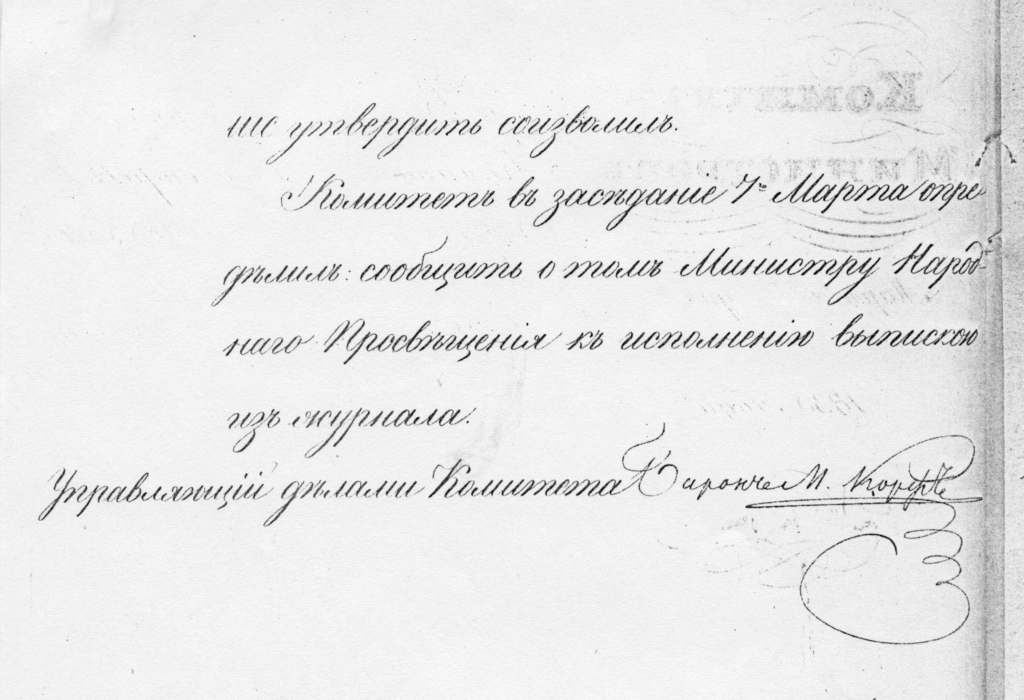 ше утвердить соизволилъ.
Комитетъ въ засѣданіе 7го Марта опре
дѣлилъ: сообщить о томъ Министру Народ-
наго Просвѣщенія къ исполненію выпискою
изъ журнала.
Управляющій дѣлами Комитета Баронъ М. Корфъ